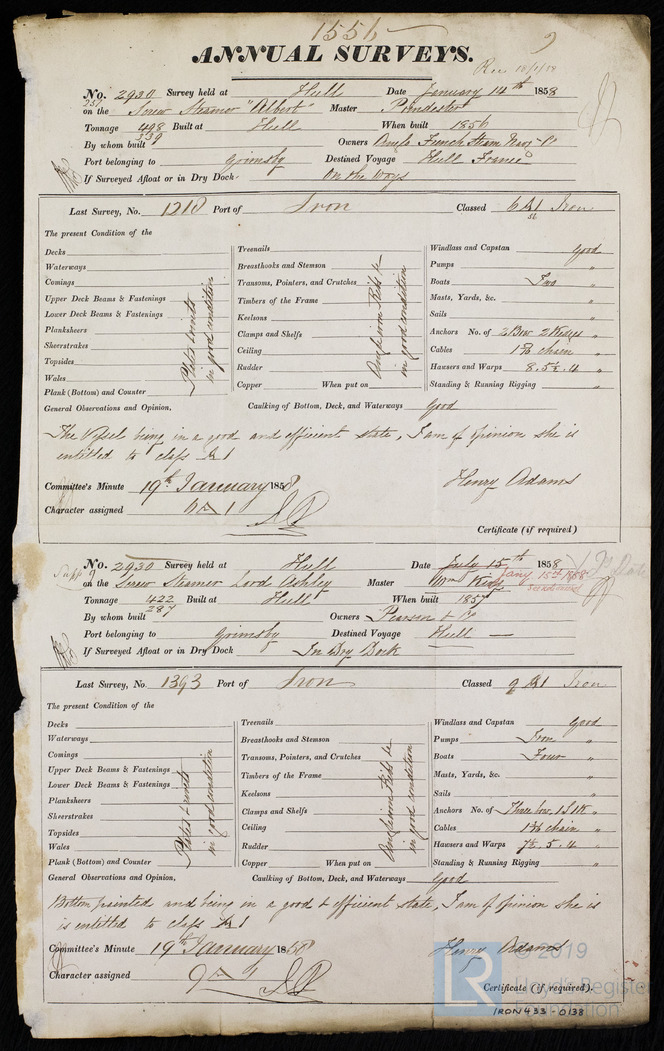 1556
ANNUAL SURVEYS.
No. 2930 Survey held at Hull Date January 14th 1858
on the Screw Steamer "Albert" Master
Tonnage 498 Built at Hull When built 1856
339
By whom built Owners Anglo French Steam Nav. Co
Port belonging to Grimsby Destined Voyage Hull France
If Surveyed Afloat or in Dry Dock On the Ways
Last Survey, No. 1218 Port of Iron Classed 6 A1 Iron
The present Condition of the
Decks
Waterways
Comings
Upper Deck Beams & Fastenings
Lower Deck Beams & Fastenings
Planksheers
Sheerstrakes
Topsides
Wales
Plank (Bottom) and Counter
Plates & rivets
in good condition
Treenails
Breasthooks and Stemson
Transoms, Pointers, and Crutches
Timbers of the Frame
Keelsons
Clamps and Shelfs
Ceiling
Rudder
Copper When put on
Angle iron Ribs &c
in good condition
Windlass and Capstan good
Pumps "
Boats Two "
Masts, Yards, &c. "
Sails "
Anchors No. of 2 Bow 2 Kedges "
Cables chain "
Hawsers and Warps 8. 5½. 4 "
Standing & Running Rigging "
General Observations and Opinion, Caulking of Bottom, Deck, and Waterways Good
The Vessel being in a good and efficient state, I am of opinion she is
entitled to class A1
Committee's Minute 19th January 1858 Henry Adams
Character assigned 6 A 1
Certificate (if required)
No. 2930 Survey held at Hull Date July 15th 1858
Jany 15th 1858
on the Screw Steamer Lord Ashley Master Wm King
Tonnage 422 Built at Hull When built 1857
287
By whom built Owners Pearson & Co
Port belonging to Grimsby Destined Voyage Hull —
If Surveyed Afloat or in Dry Dock In Dry Dock
Last Survey, No. 1393 Port of Iron Classed 9 A1 Iron
The present Condition of the
Decks
Waterways
Comings
Upper Deck Beams & Fastenings
Lower Deck Beams & Fastenings
Planksheers
Sheerstrakes
Topsides
Wales
Plank (Bottom) and Counter
Plates & rivets
in good condition
Treenails
Breasthooks and Stemson
Transoms, Pointers, and Crutches
Timbers of the Frame
Keelsons
Clamps and Shelfs
Ceiling
Rudder
Copper When put on
Angle iron Ribs &c
in good condition
Windlass and Capstan good
Pumps Iron "
Boats Four "
Masts, Yards, &c. "
Sails "
Anchors No. of Three bow, "
Cables chain "
Hawsers and Warps 7½. 5. 4 "
Standing & Running Rigging "
General Observations and Opinion, Caulking of Bottom, Deck, and Waterways good
Bottom painted and being in a good & efficient state, I am of opinion she is
is entitled to class A1
Committee's Minute 19th January 1858 Henry Adams
Character assigned 9 A 1
Certificate (if required).
© 2019
LR Lloyd's Register
Foundation
IRON433-0138